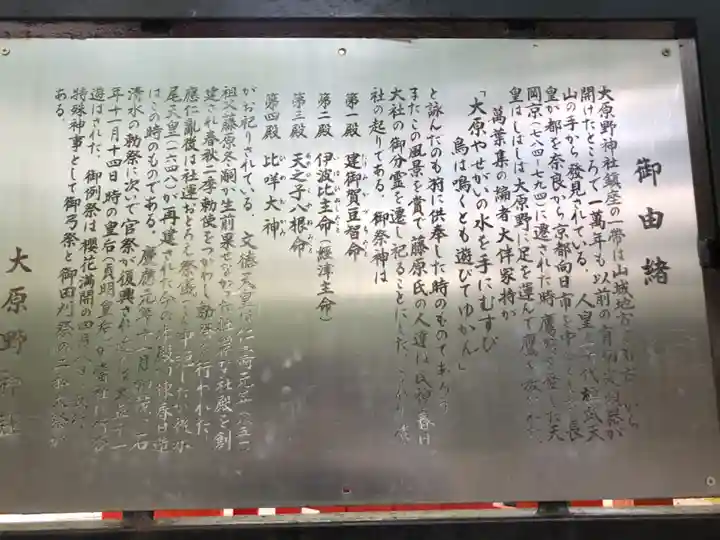 御由緒
大原野神社鎮座の一帯は山城地方
開けたところで一萬年も以前の有
山の手から發見されている。人皇 代桓武天
皇が都を奈良から京都向日市を中 長
岡京(七八四-七九四)に遷された時 した天
皇はしばしば大原野に足を運んで鷹
萬葉集の編者大伴家持が
「大原やせがいの水を手にむすび
鳥は鳴くとも遊びてゆかん」
と詠んだのも狩に供奉した時のものであ
またこの風景を賞で藤原氏の人達は氏神
大社の御分霊を遷し祀ることにした。
社の起りである。御祭神は
第一殿 建御賀豆智命
第二殿 伊波比主命(經津主命)
第三殿 天之子八根命
第四殿 比咩大神
がお祀りされている。文徳天皇は仁壽元年(八五一)
祖父藤原冬嗣が生前果せなかった壮 な社殿を創
建され春秋二季勅使をつかわし勅祭が行われた。
應仁亂後は社運おとろえ祭儀 中 したが後水
尾天皇(一六四八)が再建された今の本殿 春日造
はこの時のものである。慶應元年十一月 石
清水の勅祭に次いで官祭が復興され 十一
年十一月十四日時の皇后(貞明皇后)が當社に行啓
遊ばされた。御例祭は櫻花満開の四月八日
特殊神事として御弓祭と御田刈祭の二 祭が
ある。
大原野神社